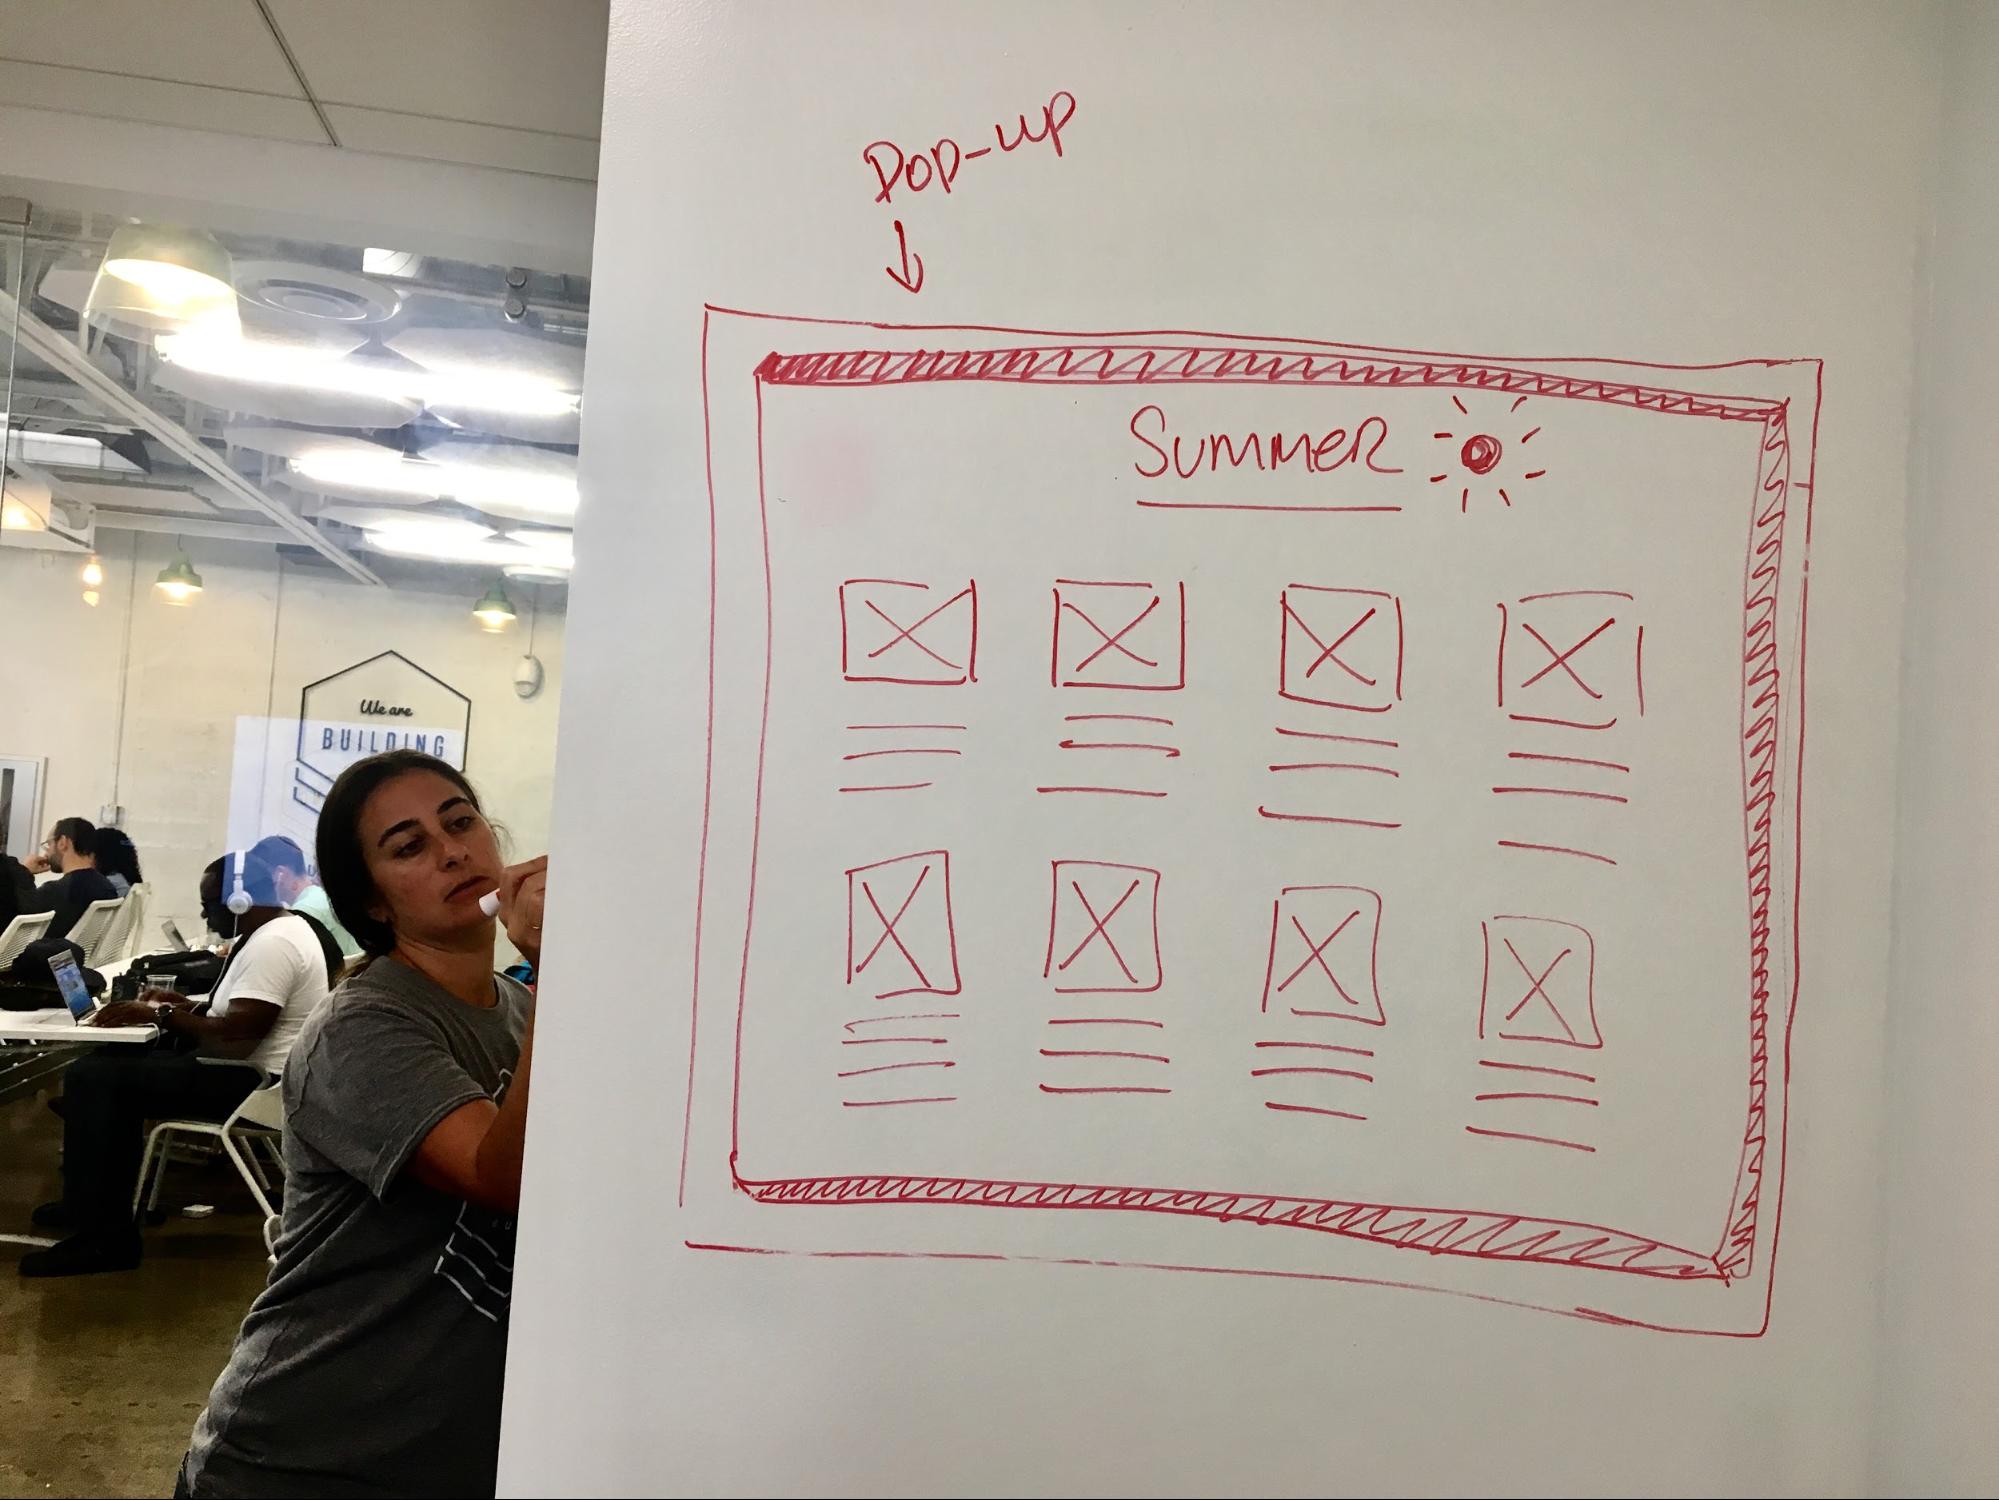 Pop-up
Summer
We are
BUILDING